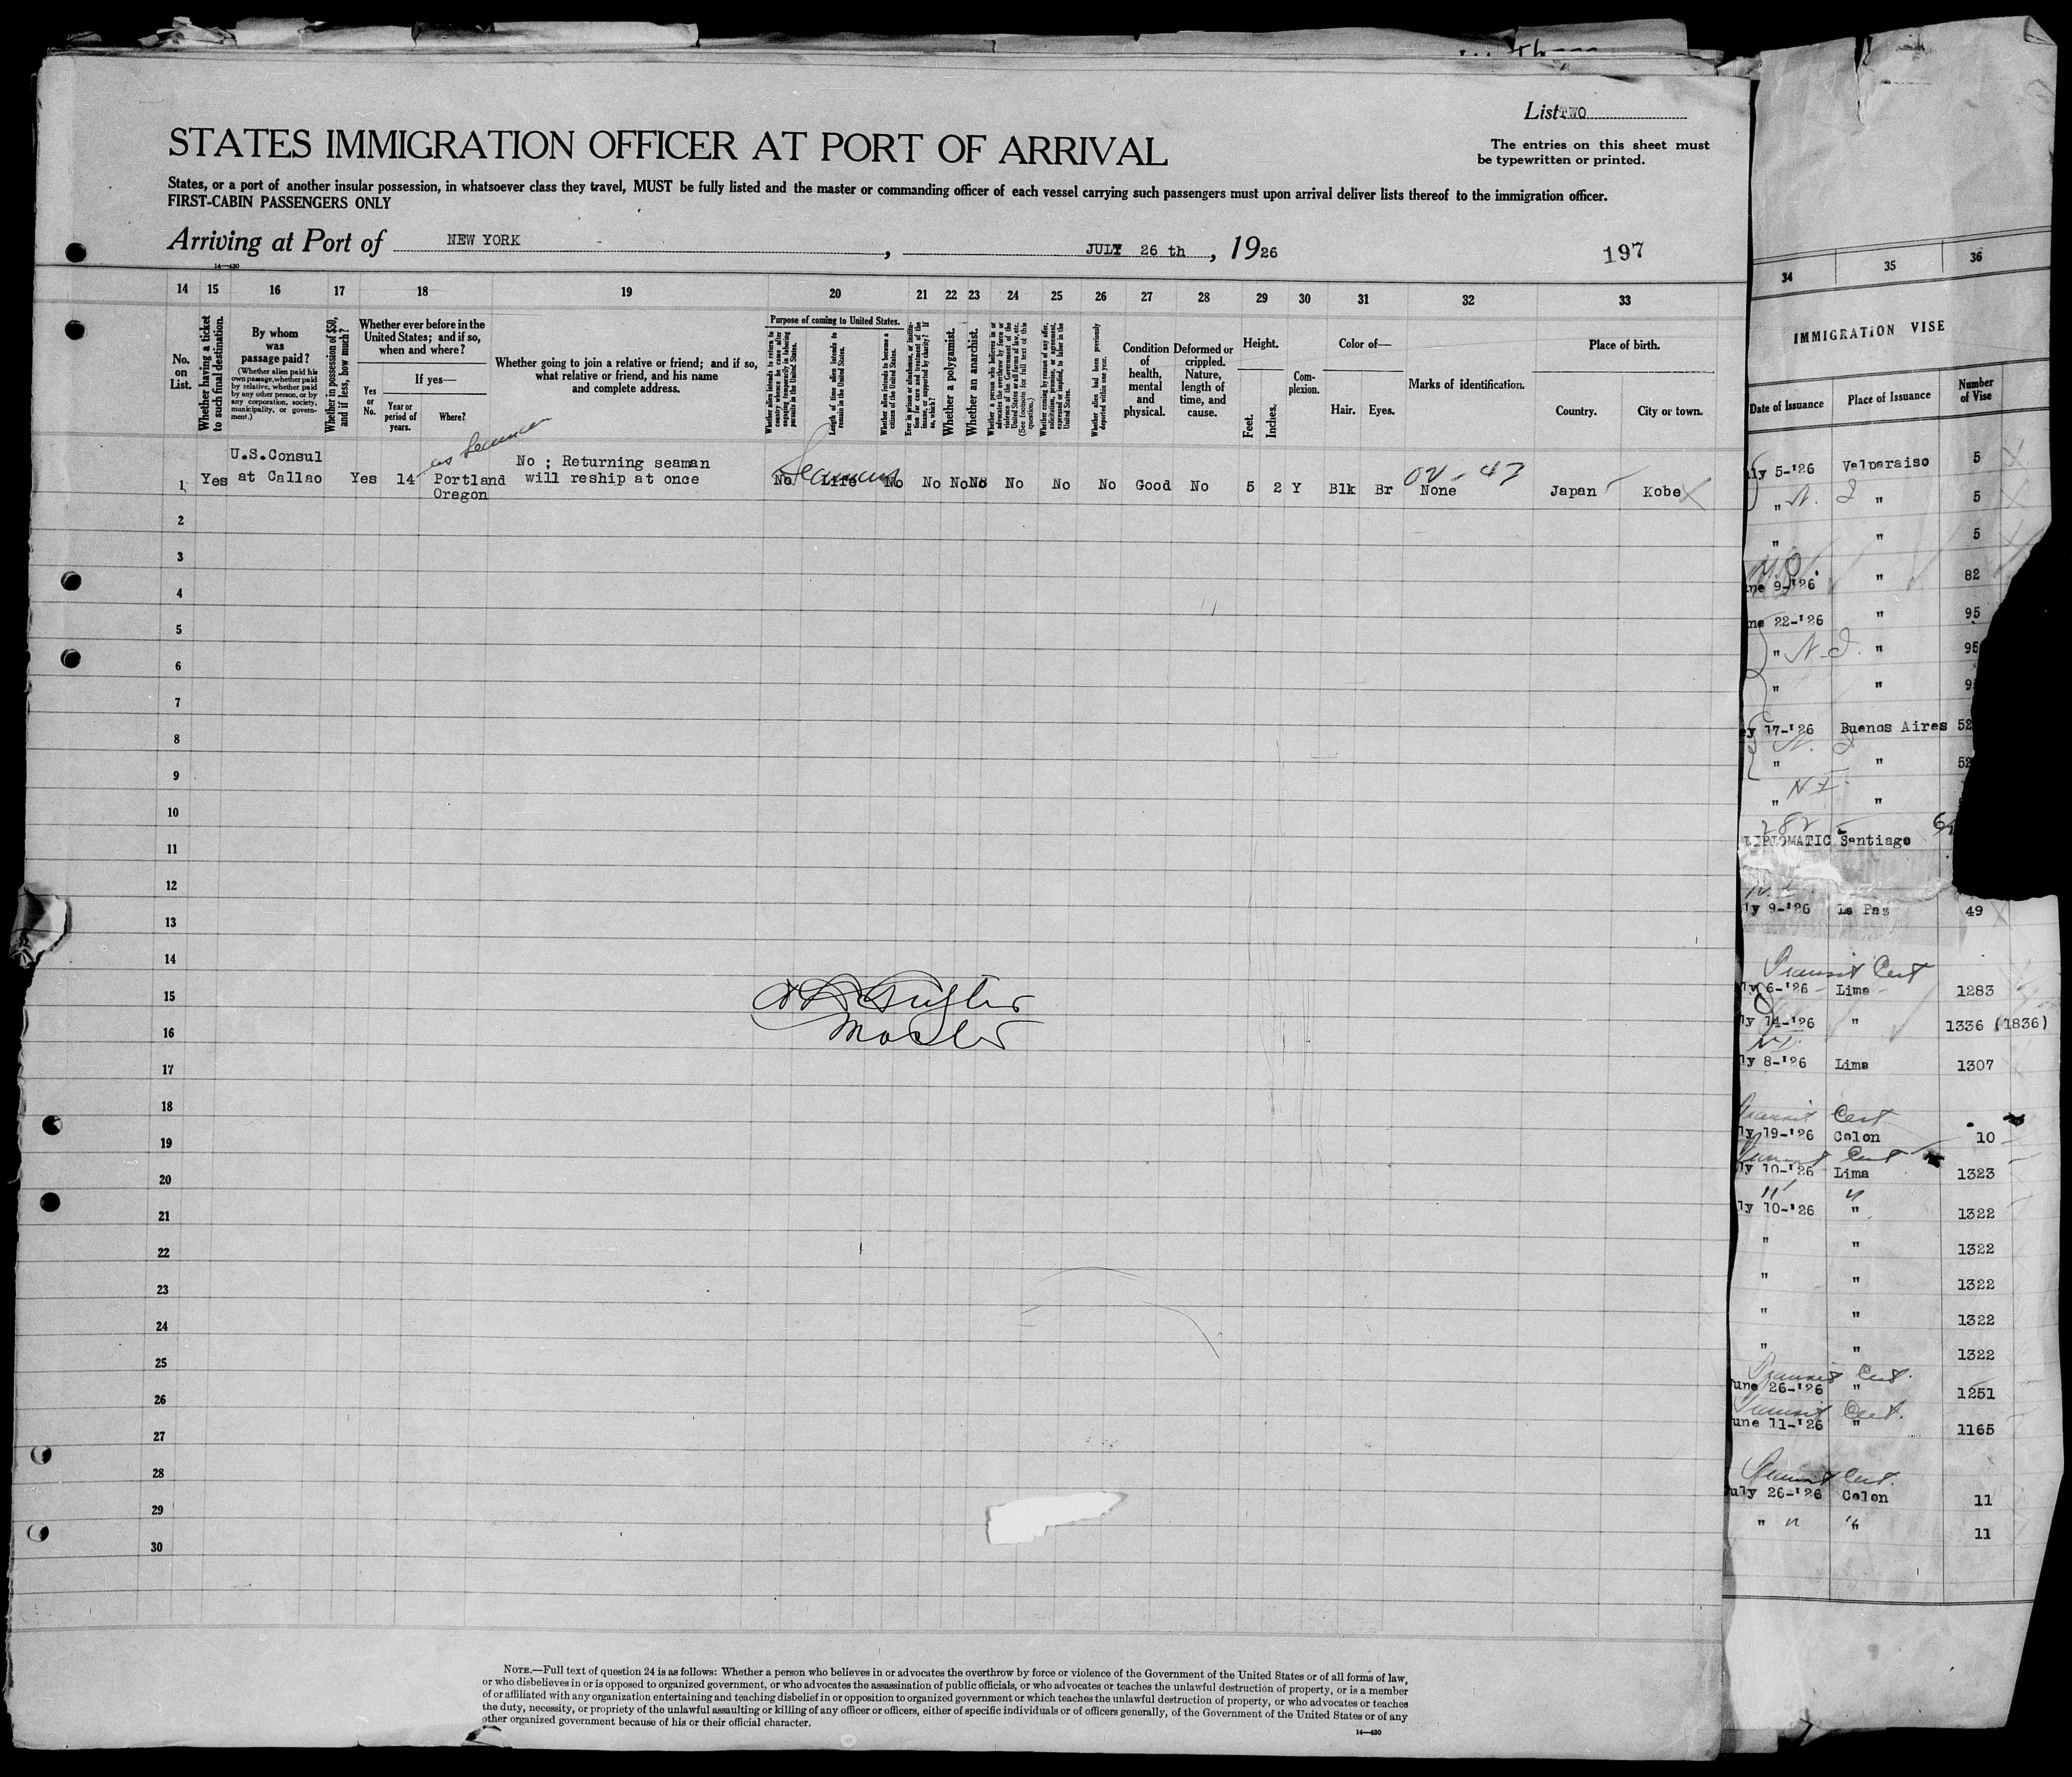 List TWO
STATES IMMIGRATION OFFICER AT PORT OF ARRIVAL
The entries on this sheet must
be typewritten or printed.
States, or a port of another insular possession, in whatsoever class they travel, MUST be fully listed and the master or commanding officer of each vessel carrying such passengers must upon arrival deliver lists thereof to the immigration officer.
FIRST-CABIN PASSENGERS ONLY
Arriving at Port of NEW YORK , JULY 26 th , 1926
197
14—430
14 15 16 17 18 19 20 21 22 23 24 25 26 27 28 29 30 31 32 33
No.
on
List.
Whether having a ticket
to such final destination.
By whom
was
passage paid?
(Whether alien paid his
own passage, whether paid
by relative, whether paid
by any other person, or by
any corporation, society,
municipality, or govern-
ment.)
Whether in possession of $50,
and if less, how much?
Whether ever before in the
United States; and if so,
when and where?
Yes
or
No.
If yes—
Year or
period of
years.
Where?
Whether going to join a relative or friend; and if so,
what relative or friend, and his name
and complete address.
Purpose of coming to United States.
Whether alien intends to return to
country whence he came after
engaging temporarily in laboring
pursuits in the United States.
Length of time alien intends to
remain in the United States.
Whether alien intends to become a
citizen of the United States.
Ever in prison or almshouse, or institu-
tion for care and treatment of the
insane, or supported by charity? If
so, which?
Whether a polygamist.
Whether an anarchist.
Whether a person who believes in or
advocates the overthrow by force or
violence of the Government of the
United States or all forms of law, etc.
(See footnote for full text of this
question.)
Whether coming by reason of any offer,
solicitation, promise, or agreement,
expressed or implied, to labor in the
United States.
Whether alien had been previously
deported within one year.
Condition
of
health,
mental
and
physical.
Deformed or
crippled.
Nature,
length of
time, and
cause.
Height.
Feet.
Inches.
Com-
plexion.
Color of—
Hair.
Eyes.
Marks of identification.
Place of birth.
Country.
City or town.
as Seaman
1 Yes U.S.Consul
at Callao Yes 14 Portland
Oregon No ; Returning seaman
will reship at once No Life No No No No No No No Good No 5 2 Y Blk Br None Japan Kobe
Seaman
2
3
4
5
6
7
8
9
10
11
12
13
14
15
16
17
18
19
20
21
22
23
24
25
26
27
28
29
30
Master
NOTE.—Full text of question 24 is as follows: Whether a person who believes in or advocates the overthrow by force or violence of the Government of the United States or of all forms of law,
or who disbelieves in or is opposed to organized government, or who advocates the assassination of public officials, or who advocates or teaches the unlawful destruction of property, or is a member
of or affiliated with any organization entertaining and teaching disbelief in or opposition to organized government or which teaches the unlawful destruction of property, or who advocates or teaches
the duty, necessity, or propriety of the unlawful assaulting or killing of any officer or officers, either of specific individuals or of officers generally, of the Government of the United States or of any
other organized government because of his or their official character.
14—430
34 35 36
IMMIGRATION VISE
Date of Issuance Place of Issuance Number
of Vise
ly 5-'26 Valparaiso 5
" " 5
" " 5
ne 9-'26 " 82
ne 22-'26 " 95
" " 95
" "
17-'26 Buenos Aires 52
" " 52
" "
DIPLOMATIC Santiago
ly 9-'26 La Paz 49
Transit Cert
ly 6-'26 Lima 1283
ly 14-'26 " 1336 (1836)
ly 8-'26 Lima 1307
Transit Cert
ly 19-'26 Colon 10
Transit Cert
ly 10-'26 Lima 1323
ly 10-'26 " 1322
" " 1322
" " 1322
" " 1322
" " 1322
Transit Cert.
une 26-'26 " 1251
Transit Cert.
une 11-'26 " 1165
Transit Cert.
uly 26-'26 Colon 11
" " " 11